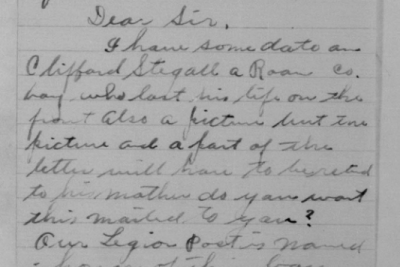 Dear Sir.
I have some data on
Clifford Stegall a Roan Co.
boy who lost his life on the
front Also a picture but the
picture and a part of the
letter will have to be
to his mother do you want
this mailed to you?
Our Legion Post is named